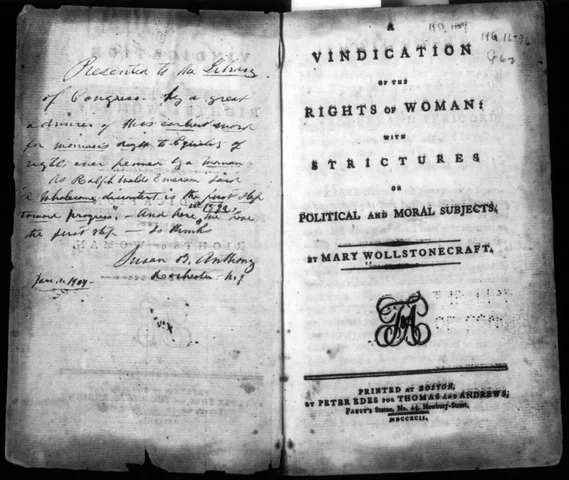 Presented to the Library
of Congress by a great
admirer of this earliest work
for woman's right to Equality of
rights ever penned by a woman.
As Ralph Waldo Emerson said
"A wholesome discontent is the first step
toward progress." And here, in 1792, we have
the first step — so thinks
Susan B. Anthony
Rochester N.Y.
Jan. 1. 1904
A
VINDICATION
OF THE
RIGHTS OF WOMAN:
WITH
STRICTURES
ON
POLITICAL AND MORAL SUBJECTS,
BY MARY WOLLSTONECRAFT.
T&A
PRINTED AT BOSTON,
BY PETER EDES FOR THOMAS AND ANDREWS,
FAUST'S Statue, No. 45, Newbury-Street,
MDCCXCII.